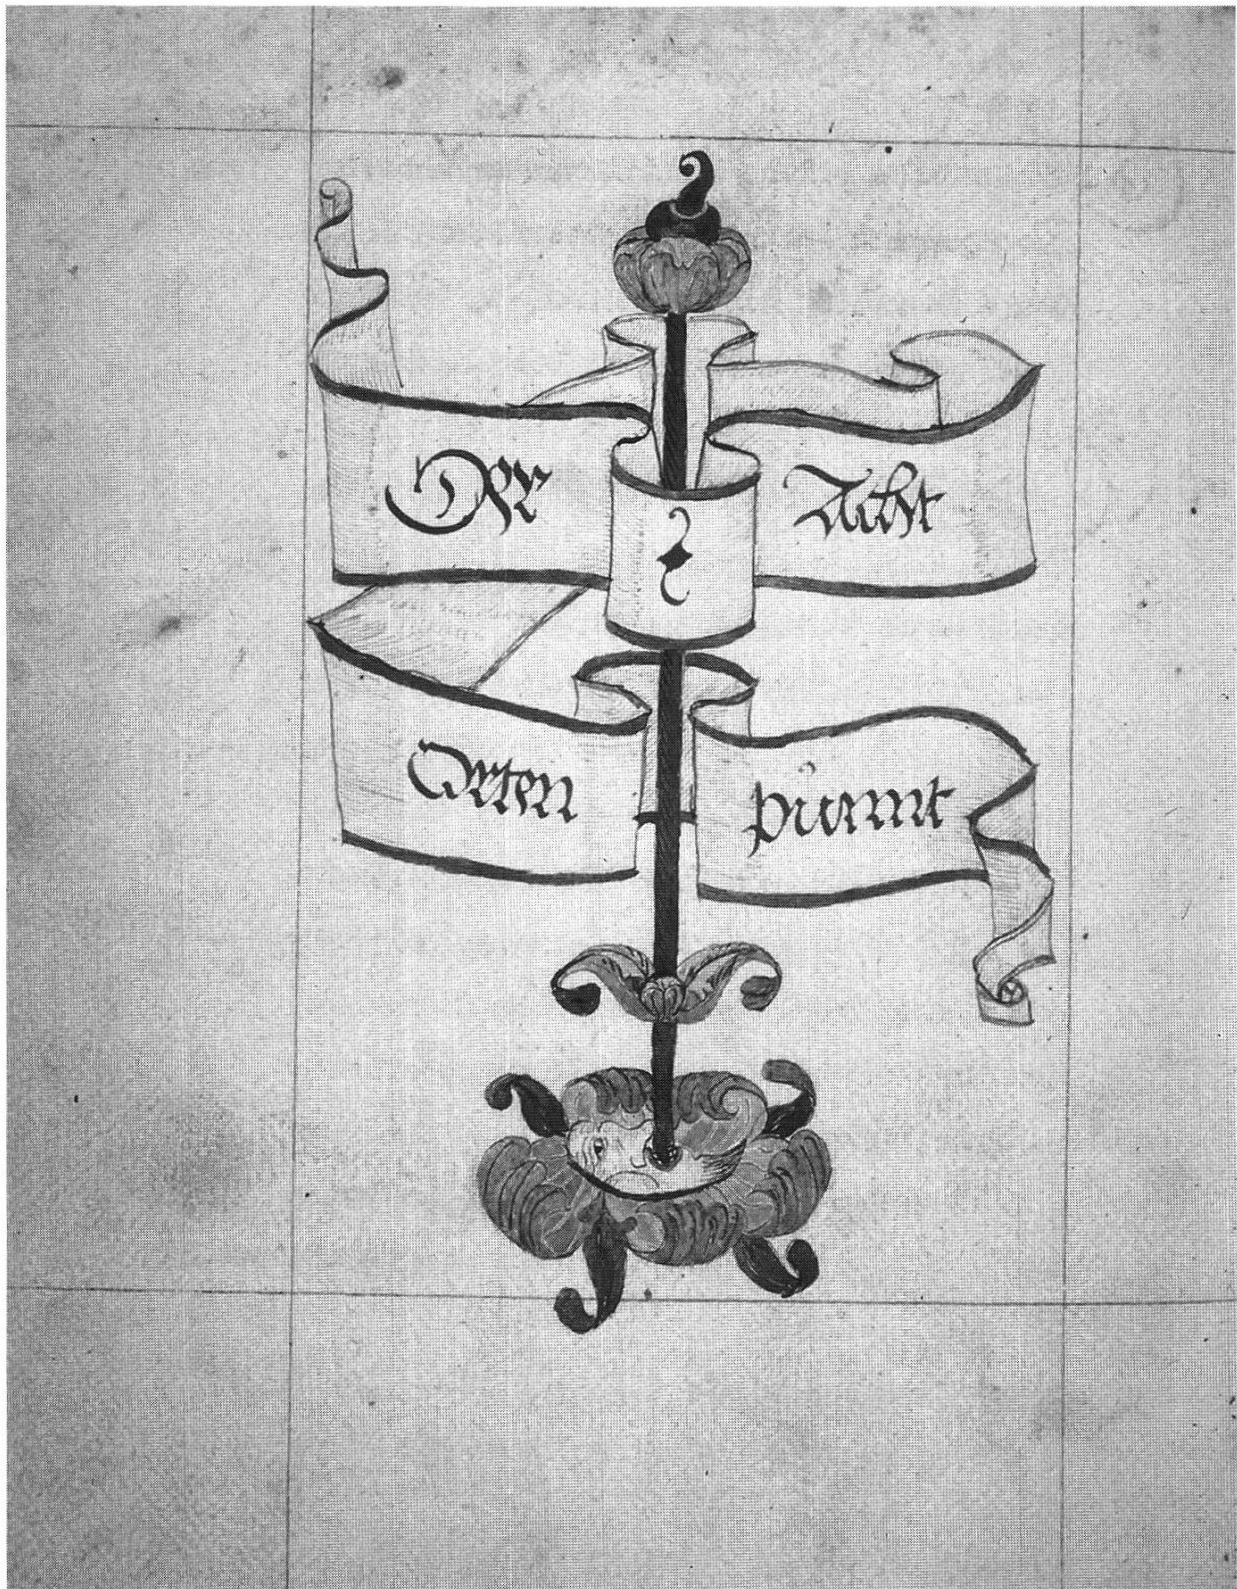 Der Acht
Orten pünnt